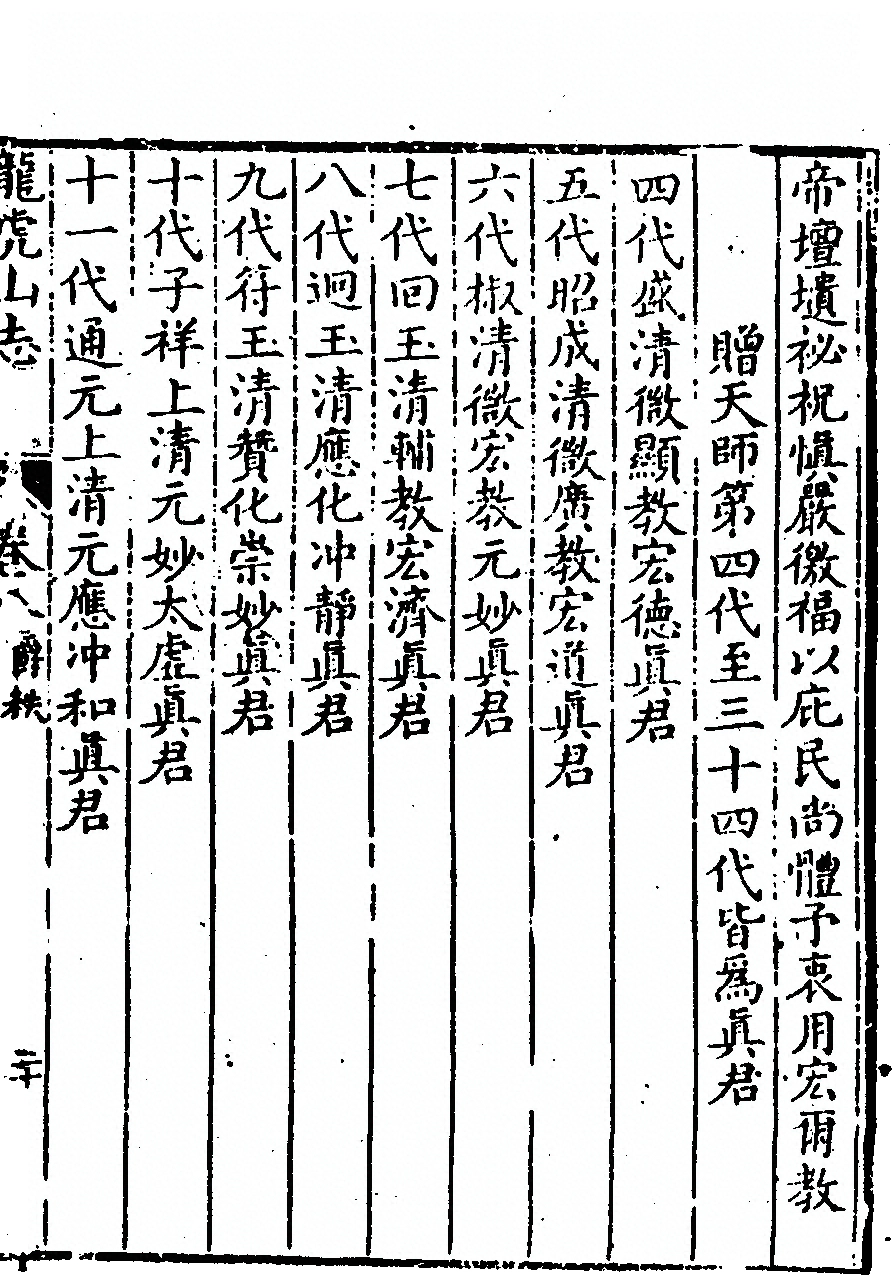 帝壇壝祕祝愼嚴徼福以庇民尚體予衷用宏爾教
贈天師第四代至三十四代皆爲眞君
四代盛清微顯教宏德眞君
五代昭成清微廣教宏道眞君
六代椒清微宏教元妙眞君
七代回玉清輔教宏濟眞君
八代迥玉清應化冲靜眞君
九代符玉清贊化崇妙眞君
十代子祥上清元妙太虛眞君
十一代通元上清元應冲和眞君
龍虎山志 卷八 爵秩 二十